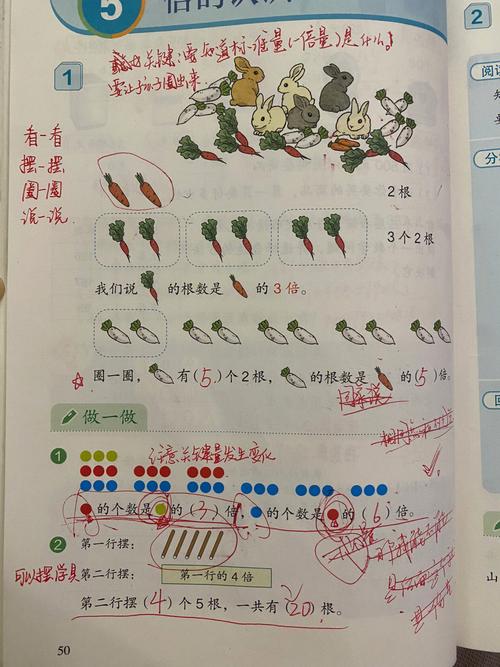 5 倍的认识
关键:要知道标准量(一倍量)是什么。
要让孩子圈出来.
1
看一看
摆一摆
圈一圈
说一说
2根
3个2根
我们说 的根数是 的3倍。
圈一圈, 有(5.)个2根, 的根数是 的(5)倍。
做一做
1 注意关键量发生变化
的个数是 的(3)倍, 的个数是 的(6)倍。
2 第一行摆:
可以摆学具 第二行摆: 第一行的4倍
第二行摆(4)个5根,一共有(20)根。
50
2
山